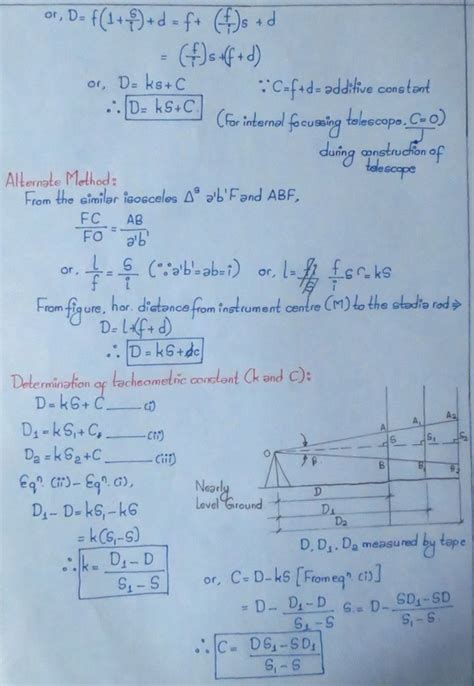 or, D = f(1 + s/i) + d = f + (f/i)s + d
= (f/i)s + (f+d)
or, D = ks + C ∵ C = f+d = additive constant
∴ D = kS + C. (For internal focussing telescope, C=0)
during construction of
telescope
Alternate Method:
From the similar isosceles Δˢ a'b'F and ABF,
FC/FO = AB/a'b'
or, l/f = s/i (∵ a'b' = ab = i) or, l = f/i s = ks
From figure, hor. distance from instrument centre (M) to the stadia rod ⇒
D = l + (f + d)
∴ D = kS + C
Determination of tacheometric constant (k and C):
D = kS + C ____ (i)
D₁ = kS₁ + C ____ (ii)
D₂ = kS₂ + C ____ (iii)
Eqⁿ. (ii) – Eqⁿ. (i),
D₁ - D = kS₁ - kS
= k(S₁ - S)
∴ k = D₁ - D / S₁ - S
O θ A S B A₁ S₁ B₁ A₂ S₂ B₂
Nearly
Level Ground
D
D₁
D₂
D, D₁, D₂ measured by tape
or, C = D - kS [From eqⁿ. (i)]
= D - D₁ - D / S₁ - S S = D - SD₁ - SD / S₁ - S
∴ C = DS₁ - SD₁ / S₁ - S